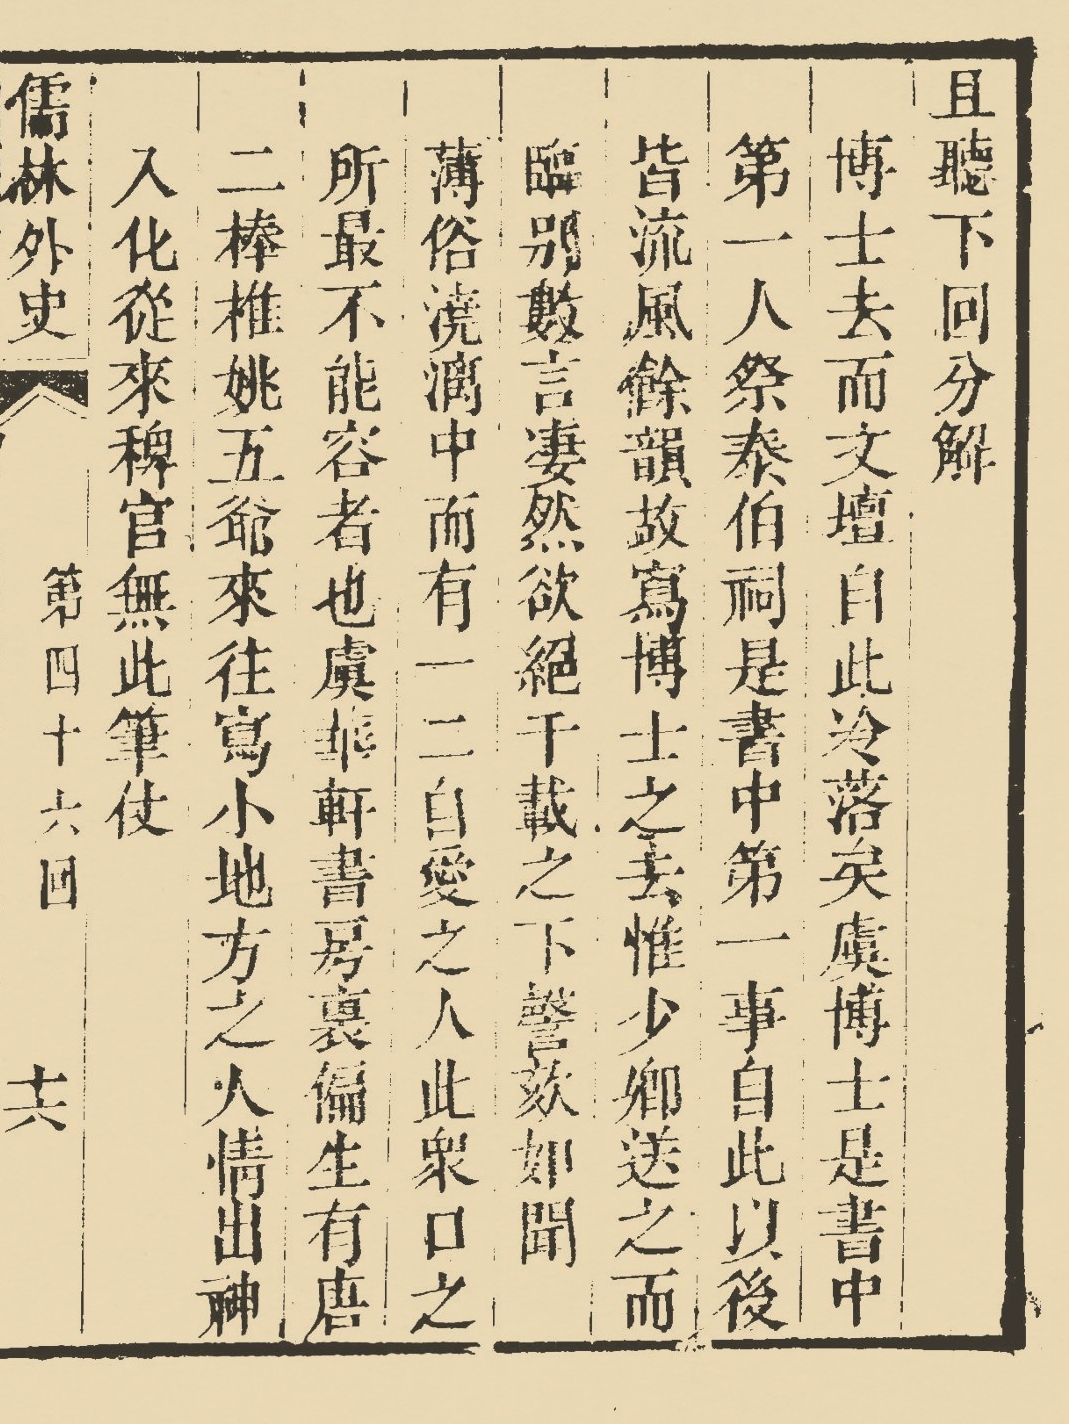 且聽下回分解
博士去而文壇自此冷落矣虞博士是書中
第一人祭泰伯祠是書中第一事自此以後
皆流風餘韻故寫博士之去惟少卿送之而
臨别數言凄然欲絕千載之下謦欬如聞
薄俗澆漓中而有一二自愛之人此衆口之
所最不能容者也虞華軒書房裏偏生有唐
二棒椎姚五爺來往寫小地方之人情出神
入化從來稗官無此筆仗
儒林外史
第四十六回
十六